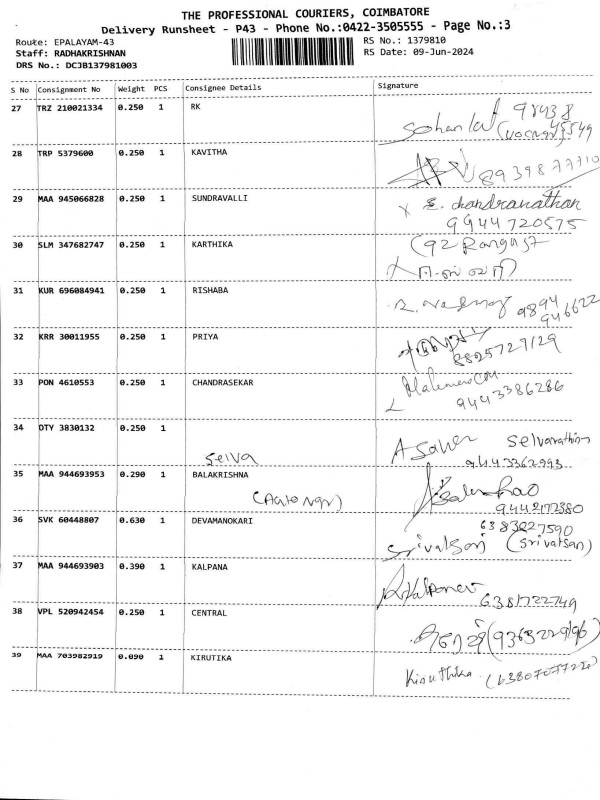 THE PROFESSIONAL COURIERS, COIMBATORE
Delivery Runsheet - P43 - Phone No.:0422-3505555 - Page No.:3
Route: EPALAYAM-43
Staff: RADHAKRISHNAN
DRS No.: DCJB137981003
RS No.: 1379810
RS Date: 09-Jun-2024
S No Consignment No Weight PCS Consignee Details Signature
27 TRZ 210021334 0.250 1 RK
98438
45549
28 TRP 5379600 0.250 1 KAVITHA
8939877710
29 MAA 945066828 0.250 1 SUNDRAVALLI
E. chandranathan
9944720575
30 SLM 347682747 0.250 1 KARTHIKA
31 KUR 696084941 0.250 1 RISHABA
9894
946622
32 KRR 30011955 0.250 1 PRIYA
8825727129
33 PON 4610553 0.250 1 CHANDRASEKAR
9443386286
34 DTY 3830132 0.250 1
Selva
9443362993
35 MAA 944693953 0.290 1 BALAKRISHNA
36 SVK 60448807 0.630 1 DEVAMANOKARI
6383027590
Srivatsan (Srivatsan)
37 MAA 944693903 0.390 1 KALPANA
6381722749
38 VPL 520942454 0.250 1 CENTRAL
39 MAA 703982919 0.090 1 KIRUTIKA
Kiruthika